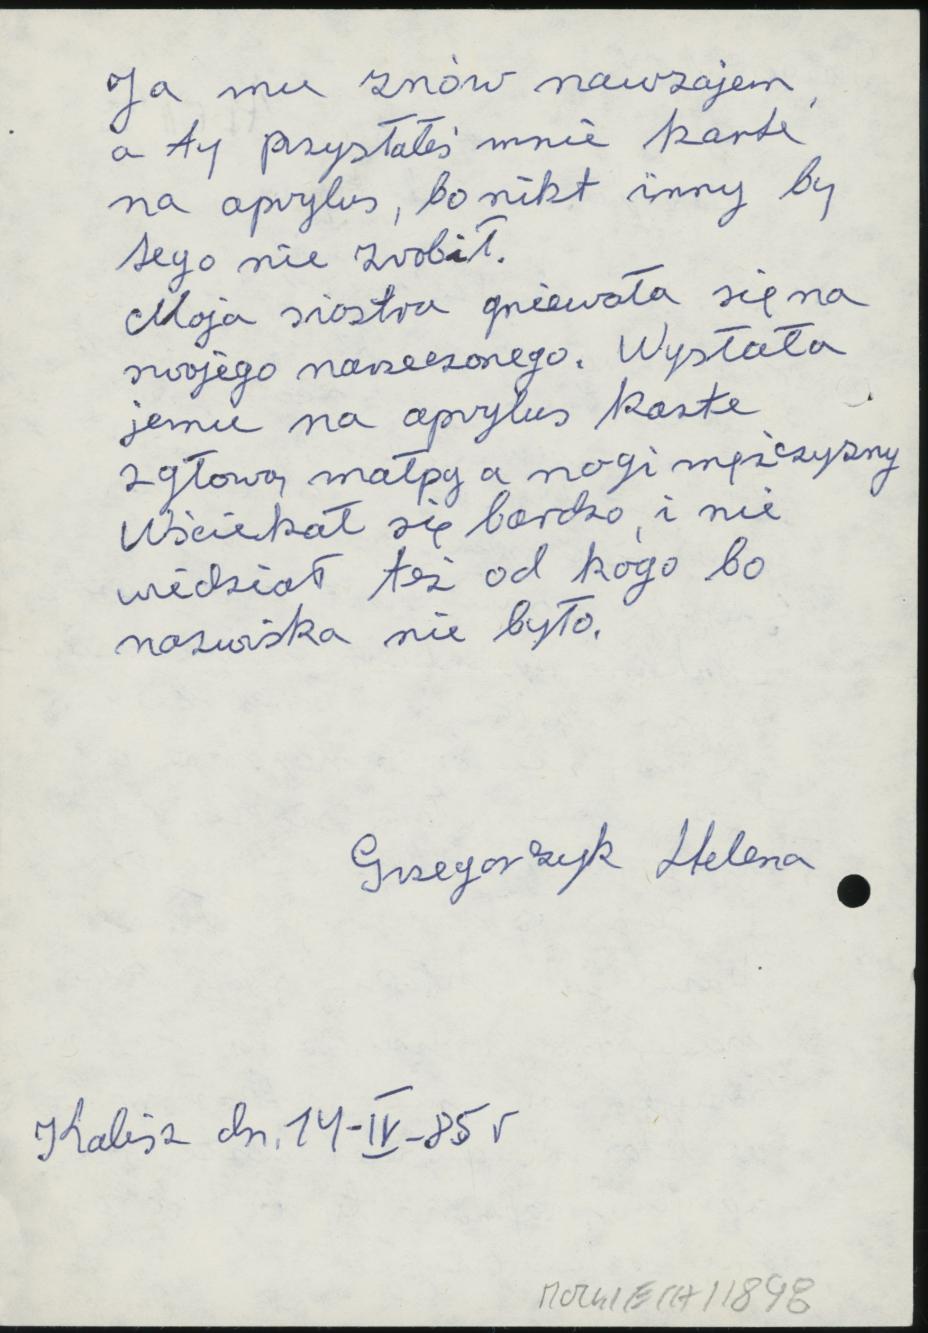 Ja mu znów nawzajem,
a ty przysłałeś mnie karte
na aprylus, bo nikt inny by
tego nie zrobił.
Moja siostra gniewała się na
swojego narzeczonego. Wysłała
jemu na aprylus karte
z głową małpy a nogi mężczyzny
Wściekał się bardzo, i nie
wiedział też od kogo bo
nazwiska nie było.
Grzegorzyk Helena
Kalisz dn. 14-IV-85 r